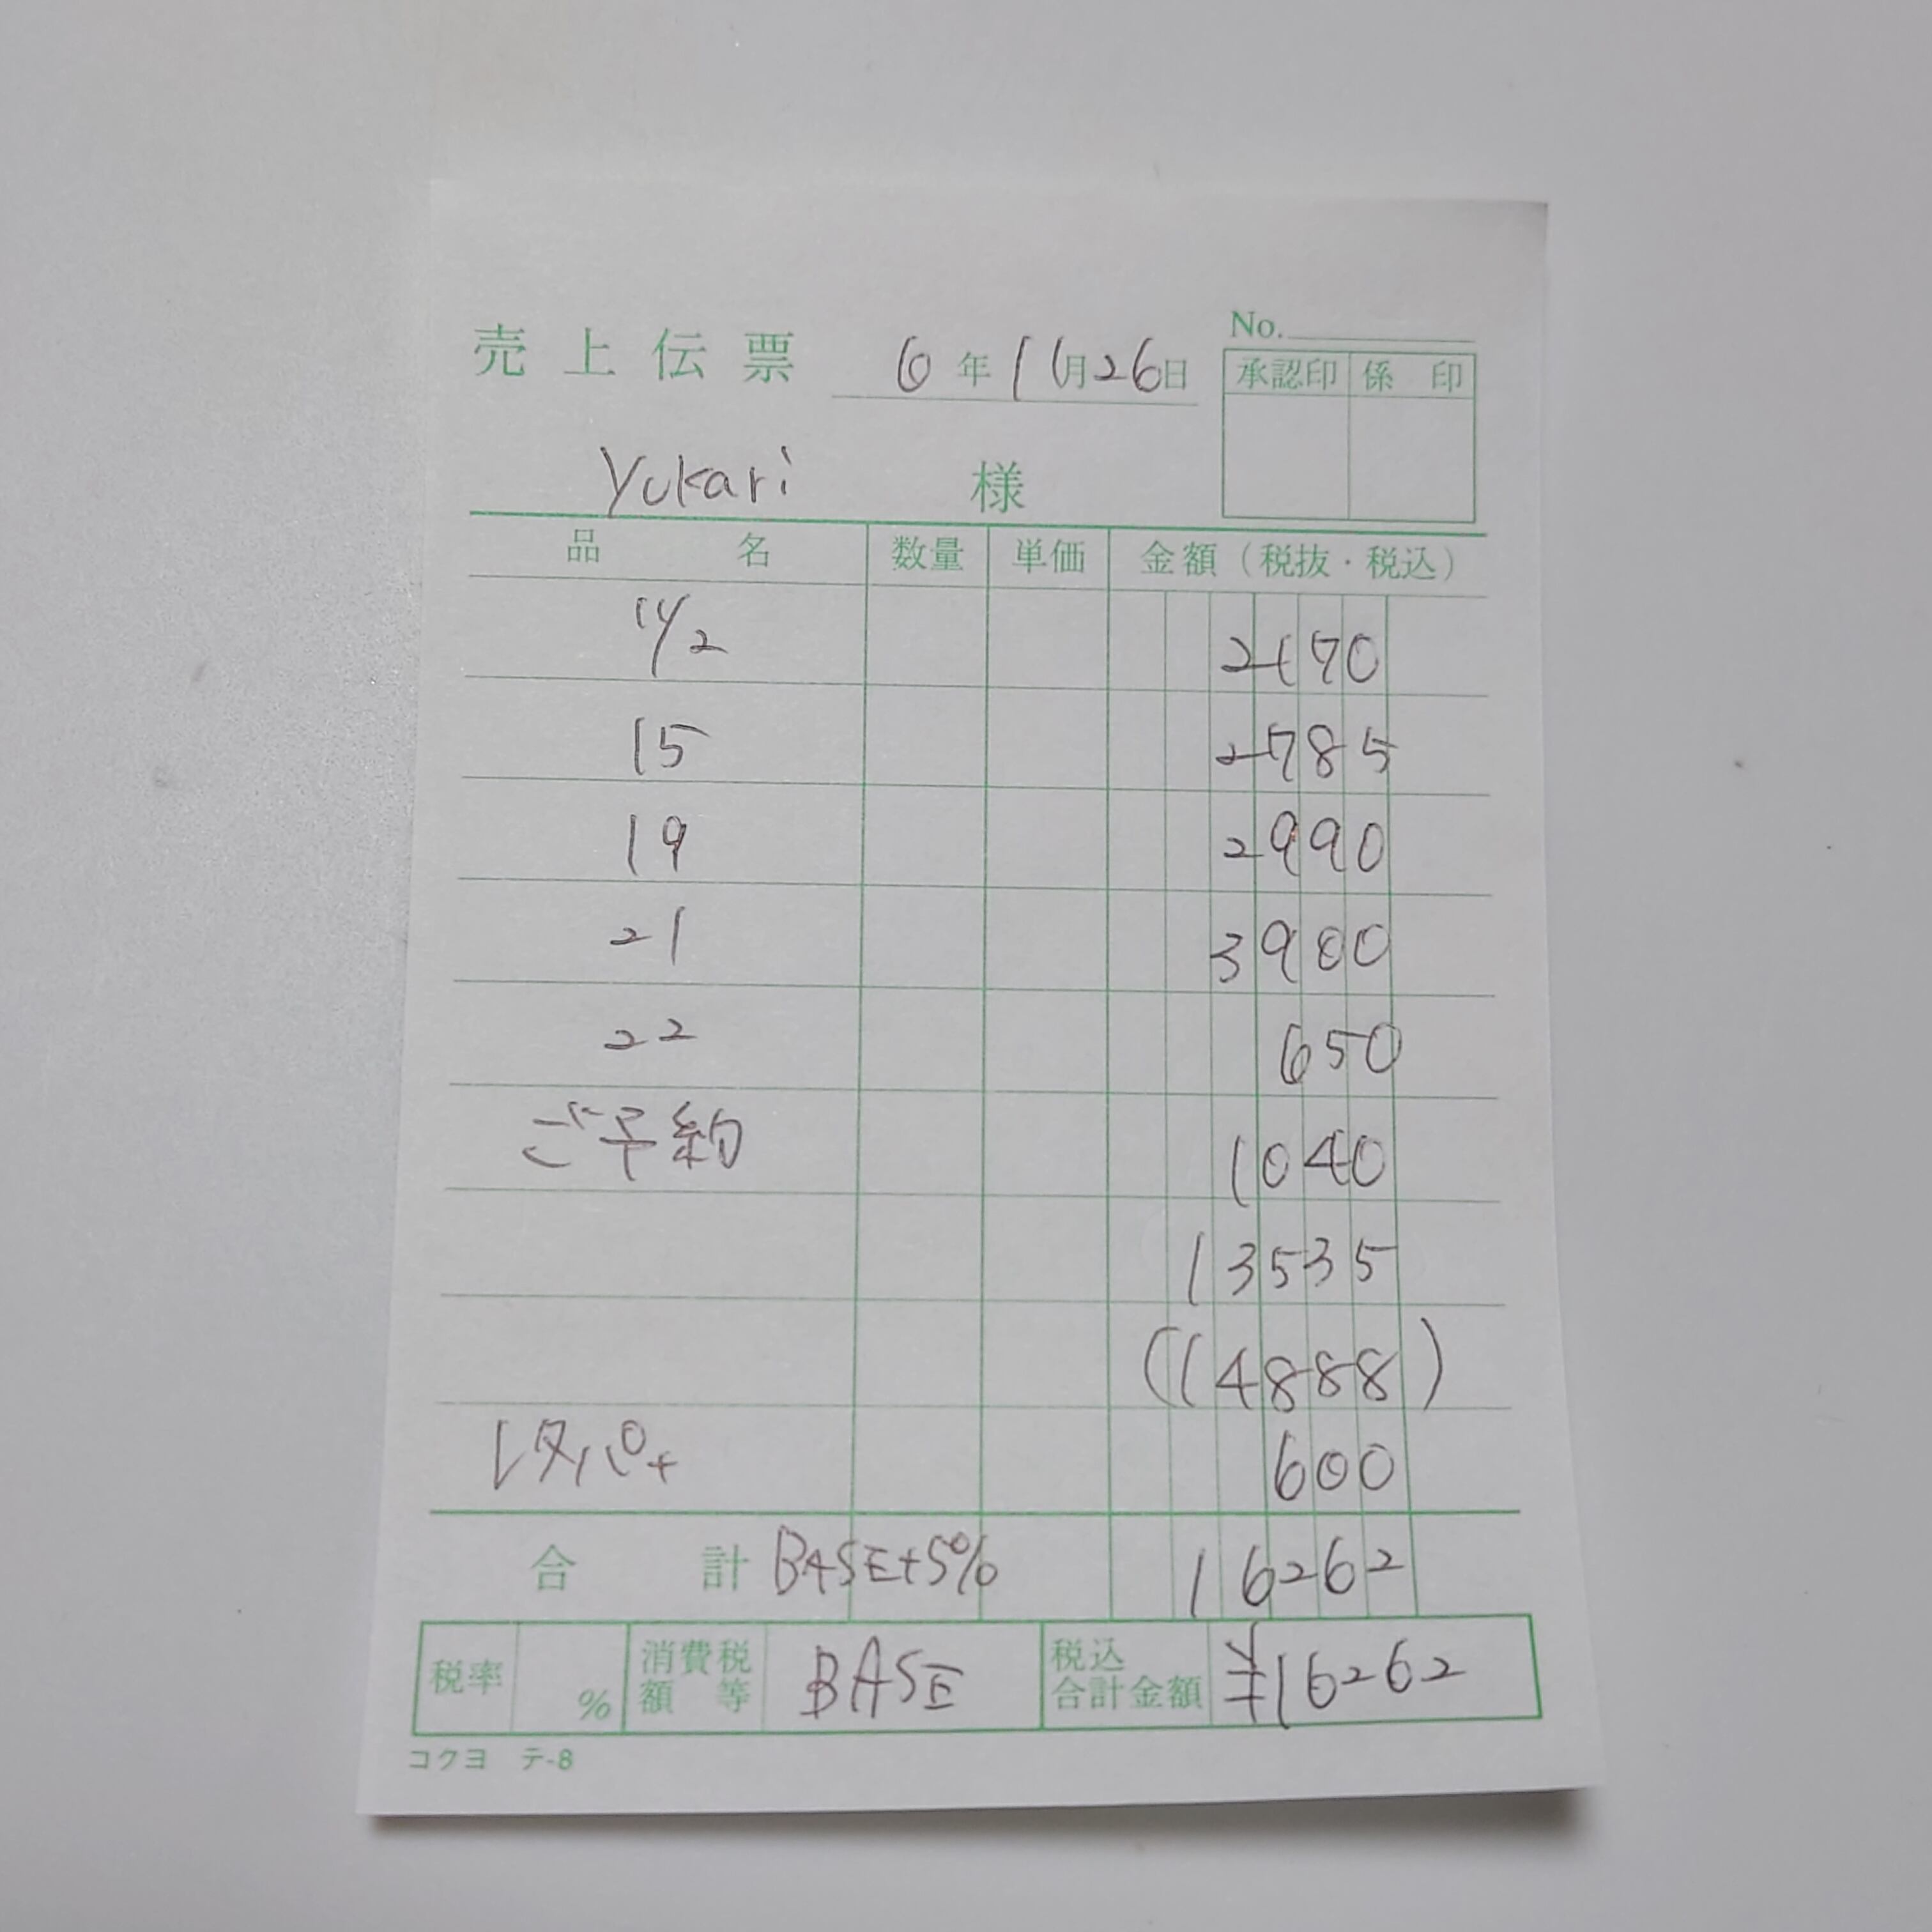 No.
売上伝票 6年11月26日
承認印 係印
Yukari 様
品名 数量 単価 金額(税抜・税込)
11/2 2170
15 2785
19 2990
21 3900
22 650
ご予約 1040
13535
(14888)
レタパ+ 600
合計 BASE+5% 16262
税率 % 消費税額等 BASE 税込合計金額 ¥16262
コクヨ テ-8